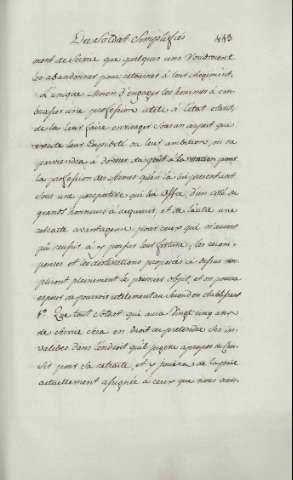 Du Soldat Simplifiés 443
ment de Seine que quelques uns voudroient
les abandonner pour retourner à leur Regiment.
L'unique moien d'engager les hommes à em-
brasser une profession utile à l'état étant,
de la leur faire envisager sous un aspect qui
excite leur cupidité ou leur ambition, on ne
parviendra à donner du goût à la nation pour
la profession des Armes qu'en la lui presentant
sous une perspective qui lui offre, d'un côté de
grands honneurs à acquerir, et de l'autre une
retraite avantageuse pour ceux qui n'auront
pû reussir à y pousser leur fortune, les recom-
penses et les distinctions proposées cy dessus rem-
pliront pleinement le premier objet, et on pourra
esperer de pourvoir utilement au second en établissant
1.° Que tout soldat qui aura vingt cinq ans
de service sera en droit de pretendre Ses In-
valides dans l'endroit qu'il jugera apropos de choi-
sir pour sa retraite, et y jouira de la paie
actuellement assignée à ceux que nous avons